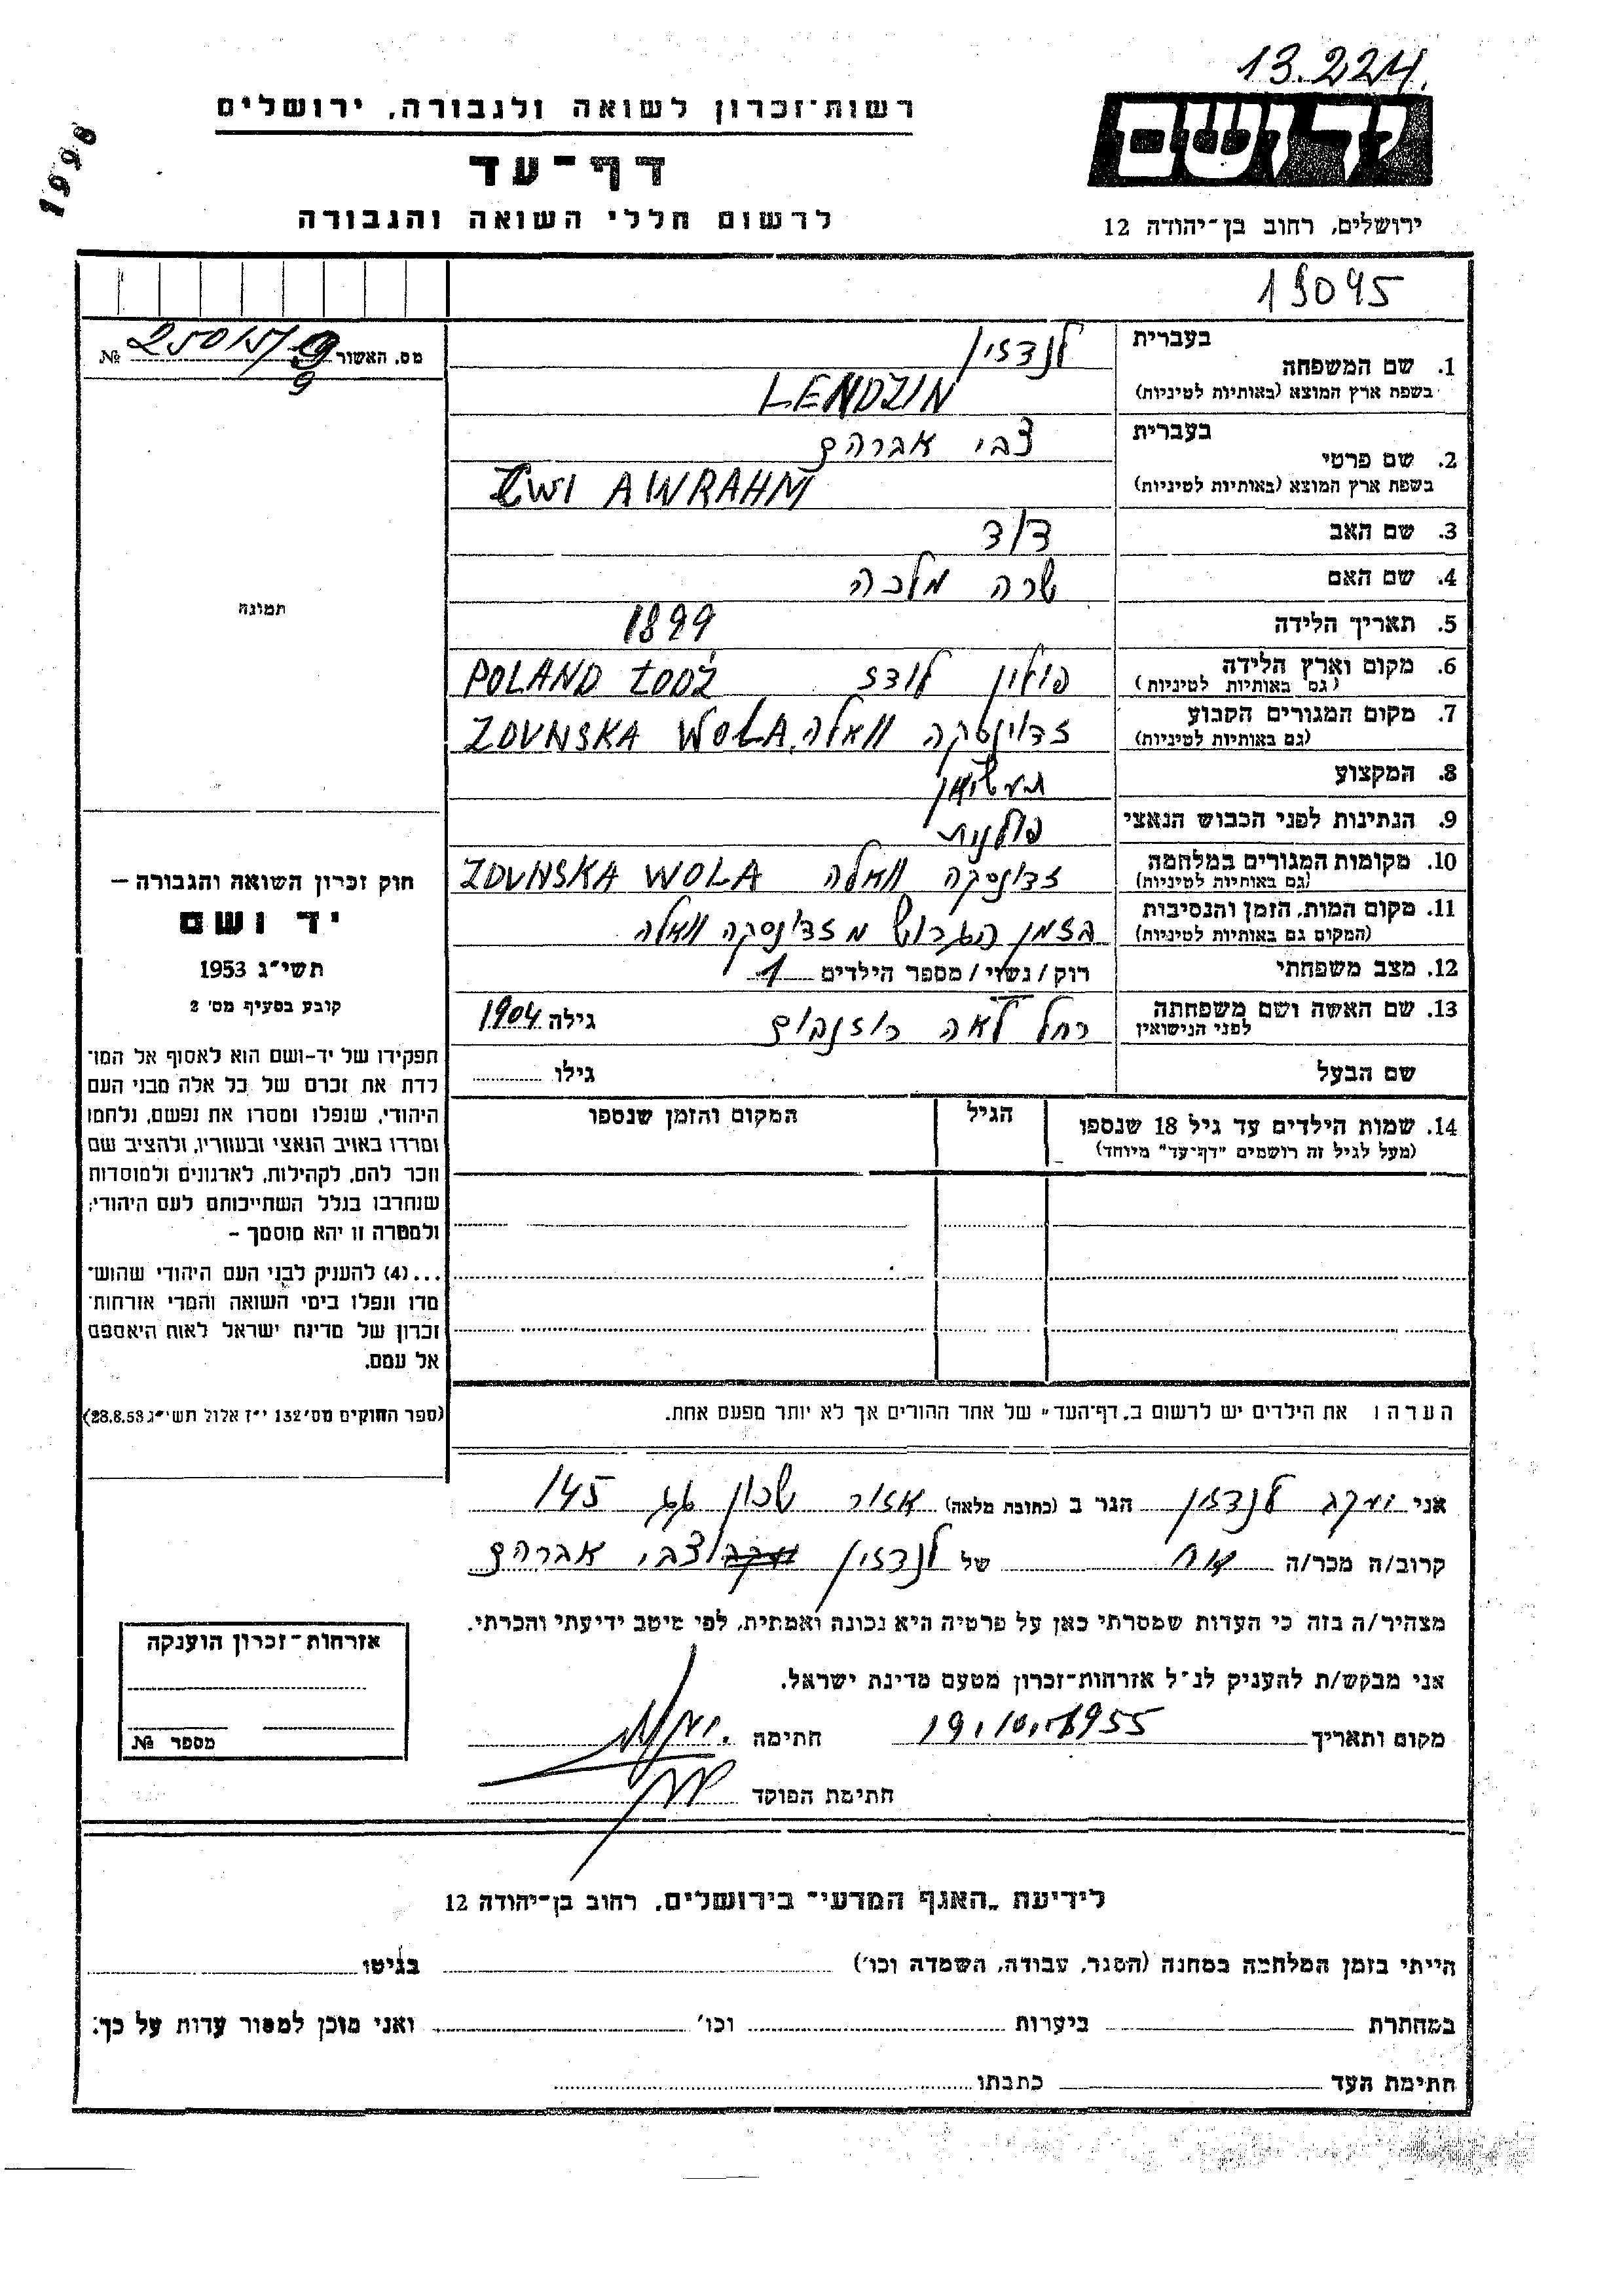 13.224.
1998
רשות־זכרון לשואה ולגבורה, ירושלים
דף־עד
לרשום חללי השואה והגבורה
ידושם
ירושלים, רחוב בן־יהודה 12
19045
מס. האשור № 
1. שם המשפחה
בעברית
לנדזין
בשפת ארץ המוצא (באותיות לטיניות)
LENDZIN
2. שם פרטי
בעברית
צבי אברהם
בשפת ארץ המוצא (באותיות לטיניות)
ZWI AWRAHM
3. שם האב
דוד
4. שם האם
שרה מלכה
5. תאריך הלידה
1899
6. מקום וארץ הלידה
(גם באותיות לטיניות)
פולין לודז POLAND ŁODŹ
7. מקום המגורים הקבוע
(גם באותיות לטיניות)
זדוינסקה וואלה, ZDVNSKA WOLA
8. המקצוע
תעשיתן
9. הנתינות לפני הכבוש הנאצי
פולנית
10. מקומות המגורים במלחמה
(גם באותיות לטיניות)
זדונסקה וואלה ZDVNSKA WOLA
11. מקום המות, הזמן והנסיבות
(המקום גם באותיות לטיניות)
בזמן הגרוש מזדונסקה וואלה
12. מצב משפחתי
רוק/נשוי/מספר הילדים 1
13. שם האשה ושם משפחתה
לפני הנישואין
רחל לאה רוזנבוים
גילה 1904
שם הבעל
גילו
14. שמות הילדים עד גיל 18 שנספו
(מעל לגיל זה רושמים "דף־עד" מיוחד)
הגיל
המקום והזמן שנספו
תמונה
חוק זכרון השואה והגבורה –
יד ושם
תשי"ג 1953
קובע בסעיף מס' 2
תפקידו של יד-ושם הוא לאסוף אל המו־
לדת את זכרם של כל אלה מבני העם
היהודי, שנפלו ומסרו את נפשם, נלחמו
ומרדו באויב הנאצי ובעוזריו, ולהציב שם
וזכר להם, לקהילות, לארגונים ולמוסדות
שנחרבו בגלל השתייכותם לעם היהודי;
ולמטרה זו יהא מוסמך –
...(4) להעניק לבני העם היהודי שהוש־
מדו ונפלו בימי השואה והמרי אזרחות־
זכרון של מדינת ישראל לאות היאספם
אל עמם.
(ספר החוקים מס' 132 י"ז אלול תשי"ג 28.8.53)
הערה: את הילדים יש לרשום ב„דף־העד" של אחד ההורים אך לא יותר מפעם אחת.
אני יעקב לנדזין הגר ב (כתובת מלאה) אזור שכון 145
קרוב/ה מכר/ה אח של לנדזין צבי אברהם
מצהיר/ה בזה כי העדות שמסרתי כאן על פרטיה היא נכונה ואמתית, לפי מיטב ידיעתי והכרתי.
אני מבקש/ת להעניק לנ"ל אזרחות־זכרון מטעם מדינת ישראל.
מקום ותאריך 19.10.1955 חתימה
חתימת הפוקד
אזרחות־זכרון הוענקה
מספר №
לידיעת „האגף המדעי" בירושלים, רחוב בן־יהודה 12
הייתי בזמן המלחמה במחנה (הסגר, עבודה, השמדה וכו') בגיטו
במחתרת ביערות וכו' ואני מוכן למסור עדות על כך:
חתימת העד כתבתו